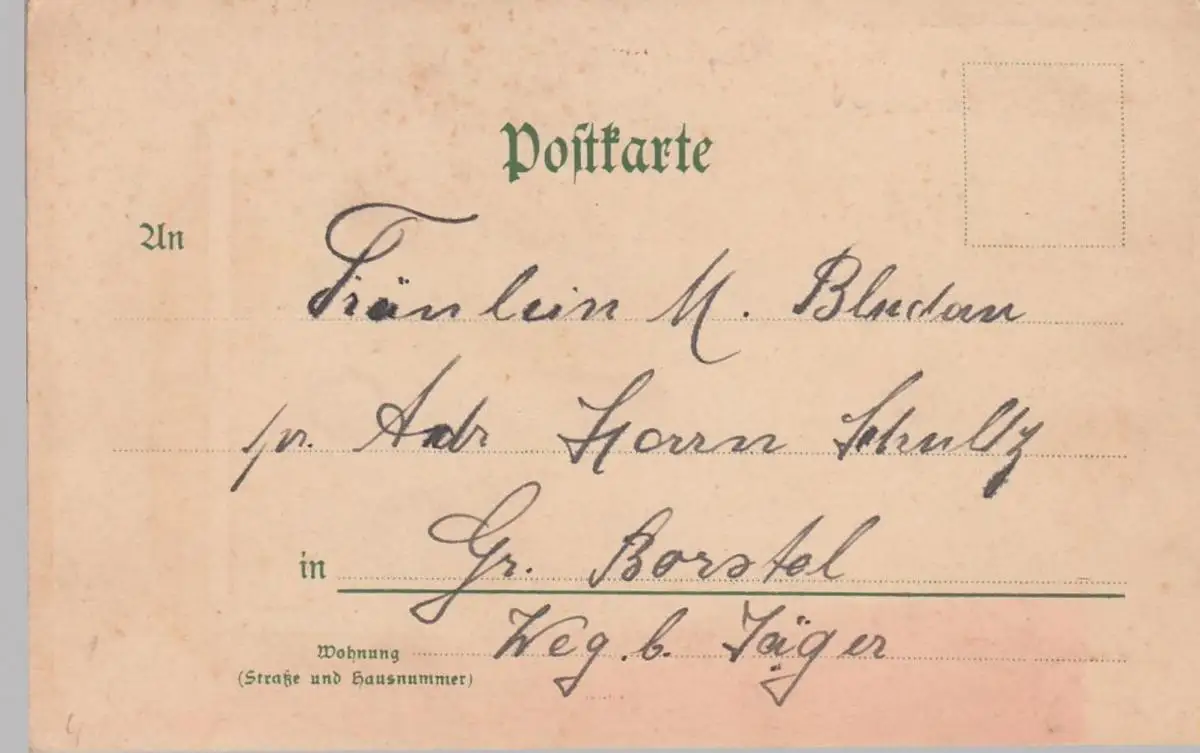 Postkarte
An
Fräulein M. Bludau
pr. Adr Herrn Schultz
in Gr. Borstel
Wohnung Weg b. Jäger
(Straße und Hausnummer)